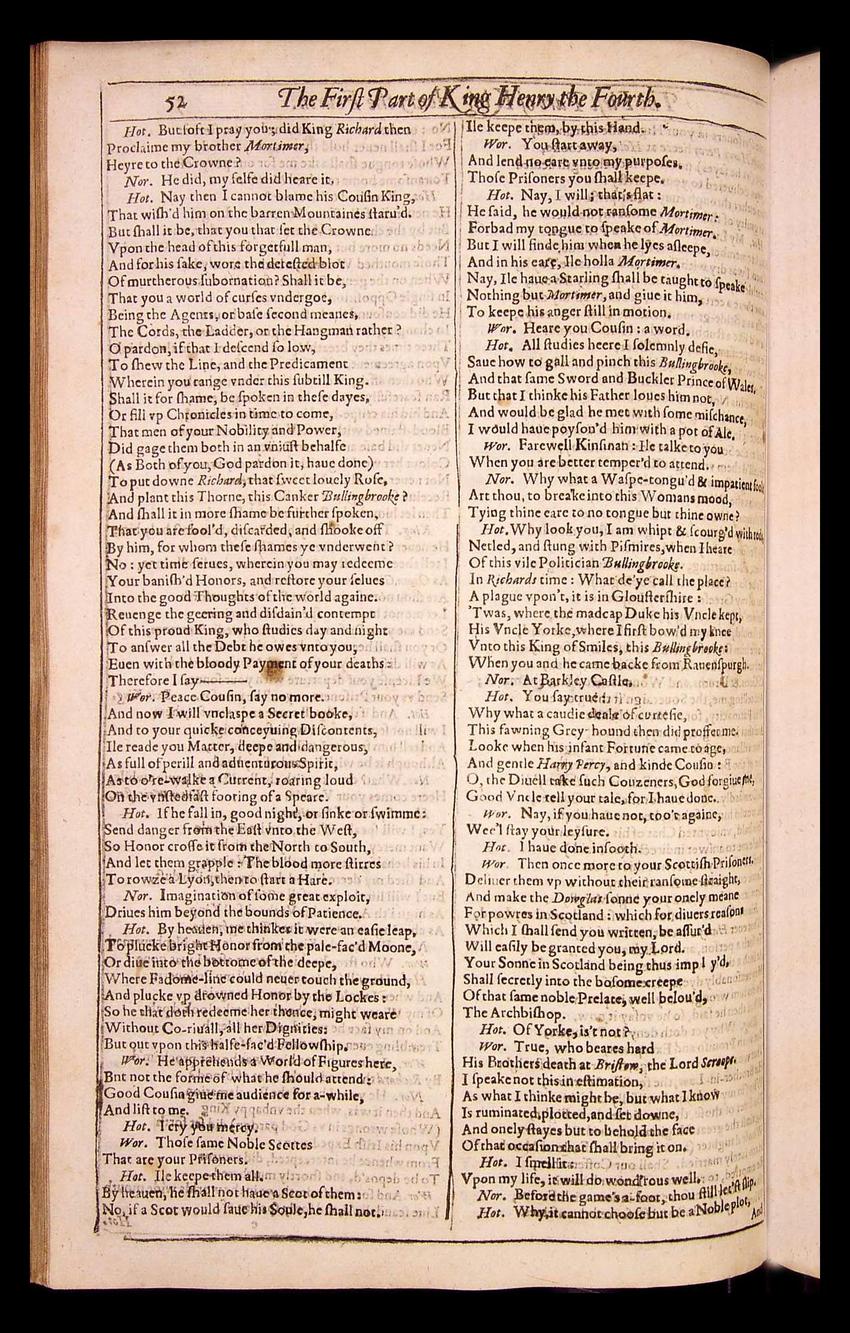 52
The First Part of King Henry the Fourth.
Hot. But soft I pray you; did King Richard then
Proclaime my brother Mortimer,
Heyre to the Crowne?
Nor. He did, my selfe did heare it.
Hot. Nay then I cannot blame his Cousin King,
That wish'd him on the barren Mountaines staru'd.
But shall it be, that you that set the Crowne
Vpon the head of this forgetfull man,
And for his sake, wore the detested blot
Of murtherous subornation? Shall it be,
That you a world of curses vndergoe,
Being the Agents, or base second meanes,
The Cords, the Ladder, or the Hangman rather?
O pardon, if that I descend so low,
To shew the Line, and the Predicament
Wherein you range vnder this subtill King.
Shall it for shame, be spoken in these dayes,
Or fill vp Chronicles in time to come,
That men of your Nobility and Power,
Did gage them both in an vniust behalfe
(As Both of you, God pardon it, haue done)
To put downe Richard, that sweet louely Rose,
And plant this Thorne, this Canker Bullingbrooke?
And shall it in more shame be further spoken,
That you are fool'd, discarded, and shooke off
By him, for whom these shames ye vnderwent?
No: yet time serues, wherein you may redeeme
Your banish'd Honors, and restore your selues
Into the good Thoughts of the world againe.
Reuenge the geering and disdain'd contempt
Of this proud King, who studies day and night
To answer all the Debt he owes vnto you,
Euen with the bloody Payment of your deaths:
Therefore I say———
Wor. Peace Cousin, say no more.
And now I will vnclaspe a Secret booke,
And to your quicke conceyuing Discontents,
Ile reade you Matter, deepe and dangerous,
As full of perill and aduenturous Spirit,
As to o're-walke a Current, roaring loud
On the vnstedfast footing of a Speare.
Hot. If he fall in, good night, or sinke or swimme:
Send danger from the East vnto the West,
So Honor crosse it from the North to South,
And let them grapple: The blood more stirres
To rowze a Lyon, then to start a Hare.
Nor. Imagination of some great exploit,
Driues him beyond the bounds of Patience.
Hot. By heauen, me thinkes it were an easie leap,
To plucke bright Honor from the pale-fac'd Moone,
Or diue into the bottome of the deepe,
Where Fadome-line could neuer touch the ground,
And plucke vp drowned Honor by the Lockes:
So he that doth redeeme her thence, might weare
Without Co-riuall, all her Dignities:
But out vpon this halfe-fac'd Fellowship.
Wor. He apprehends a World of Figures here,
Bnt not the forme of what he should attend:
Good Cousin giue me audience for a-while,
And list to me.
Hot. I cry you mercy.
Wor. Those same Noble Scottes
That are your Prisoners.
Hot. Ile keepe them all.
By heauen, he shall not haue a Scot of them:
No, if a Scot would saue his Soule, he shall not.
Ile keepe them, by this Hand.
Wor. You start away,
And lend no eare vnto my purposes.
Those Prisoners you shall keepe.
Hot. Nay, I will; that's flat:
He said, he would not ransome Mortimer:
Forbad my tongue to speake of Mortimer.
But I will finde him when he lyes asleepe,
And in his eare, Ile holla Mortimer.
Nay, Ile haue a Starling shall be taught to speake
Nothing but Mortimer, and giue it him,
To keepe his anger still in motion.
Wor. Heare you Cousin: a word.
Hot. All studies heere I solemnly defie,
Saue how to gall and pinch this Bullingbrooke,
And that same Sword and Buckler Prince of Wales.
But that I thinke his Father loues him not,
And would be glad he met with some mischance,
I would haue poyson'd him with a pot of Ale.
Wor. Farewell Kinsman: Ile talke to you
When you are better temper'd to attend.
Nor. Why what a Waspe-tongu'd & impatient foole
Art thou, to breake into this Womans mood,
Tying thine eare to no tongue but thine owne?
Hot. Why look you, I am whipt & scourg'd with rods,
Netled, and stung with Pismires, when I heare
Of this vile Politician Bullingbrooke.
In Richards time: What de'ye call the place?
A plague vpon't, it is in Gloustershire:
'Twas, where the madcap Duke his Vncle kept,
His Vncle Yorke, where I first bow'd my knee
Vnto this King of Smiles, this Bullingbrooke:
When you and he came backe from Rauenspurgh.
Nor. At Barkley Castle.
Hot. You say true:
Why what a caudie deale of curtesie,
This fawning Grey-hound then did proffer me.
Looke when his infant Fortune came to age,
And gentle Harry Percy, and kinde Cousin:
O, the Diuell take such Couzeners, God forgiue me,
Good Vncle tell your tale, for I haue done.
Wor. Nay, if you haue not, too't againe,
Wee'l stay your leysure.
Hot. I haue done insooth.
Wor. Then once more to your Scottish Prisoners.
Deliuer them vp without their ransome straight,
And make the Dowglas sonne your onely meane
For powres in Scotland: which for diuers reasons
Which I shall send you written, be assur'd
Will easily be granted you, my Lord.
Your Sonne in Scotland being thus impl y'd,
Shall secretly into the bosome creepe
Of that same noble Prelate, well belou'd,
The Archbishop.
Hot. Of Yorke, is't not?
Wor. True, who beares hard
His Brothers death at Bristow, the Lord Scroope.
I speake not this in estimation,
As what I thinke might be, but what I know
Is ruminated, plotted, and set downe,
And onely stayes but to behold the face
Of that occasion that shall bring it on.
Hot. I smell it:
Vpon my life, it will do wond'rous well.
Nor. Before the game's a-foot, thou still let'st slip.
Hot. Why, it cannot choose but be a Noble plot,
And